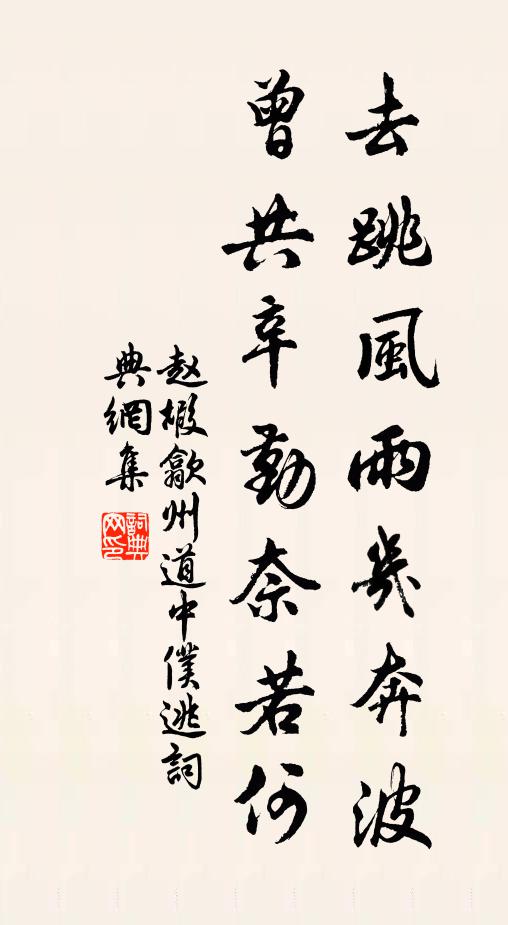 去跳風雨幾奔波
曾共辛勤奈若何
赵椴歙州道中僕逃詞
典網集
詞典
网印